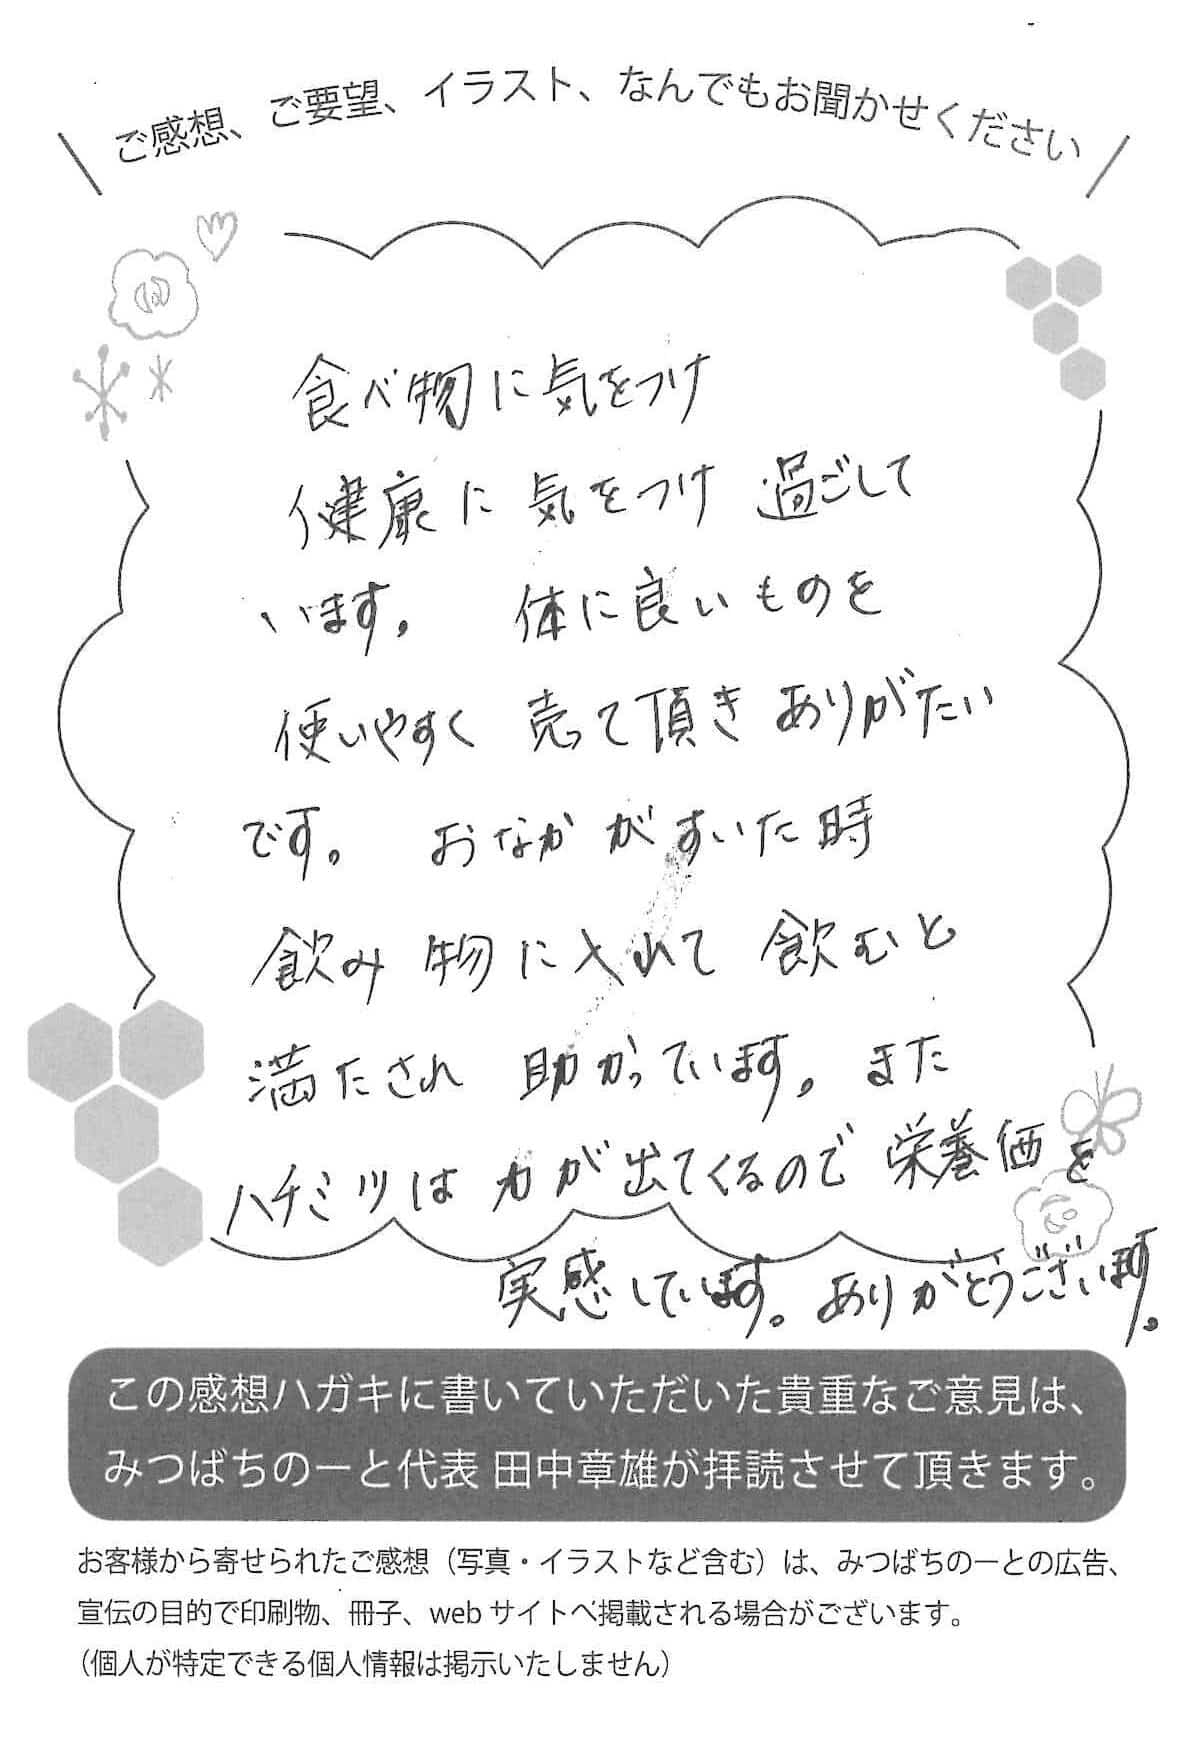 ご感想、ご要望、イラスト、なんでもお聞かせください
食べ物に気をつけ
健康に気をつけ 過ごして
います。 体に良いものを
使いやすく 売って頂き ありがたい
です。 おなかがすいた時
飲み物に入れて 飲むと
満たされ 助かっています。また
ハチミツは力が出てくるので栄養価を
実感しています。ありがとうございます。
この感想ハガキに書いていただいた貴重なご意見は、
みつばちのーと代表 田中章雄が拝読させて頂きます。
お客様から寄せられたご感想（写真・イラストなど含む）は、みつばちのーとの広告、
宣伝の目的で印刷物、冊子、web サイトへ掲載される場合がございます。
（個人が特定できる個人情報は掲示いたしません）